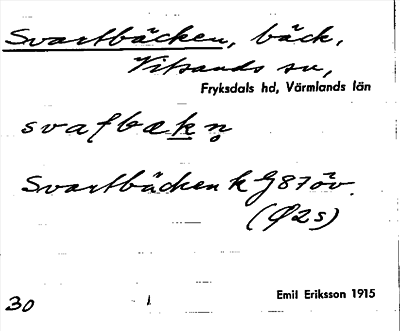 Svartbäcken, bäck,
Vitsands sn,
Fryksdals hd, Värmlands län
svaʃbækn̥
Svartbäcken k G 87 öv.
(Ö2s)
Emil Eriksson 1915
30